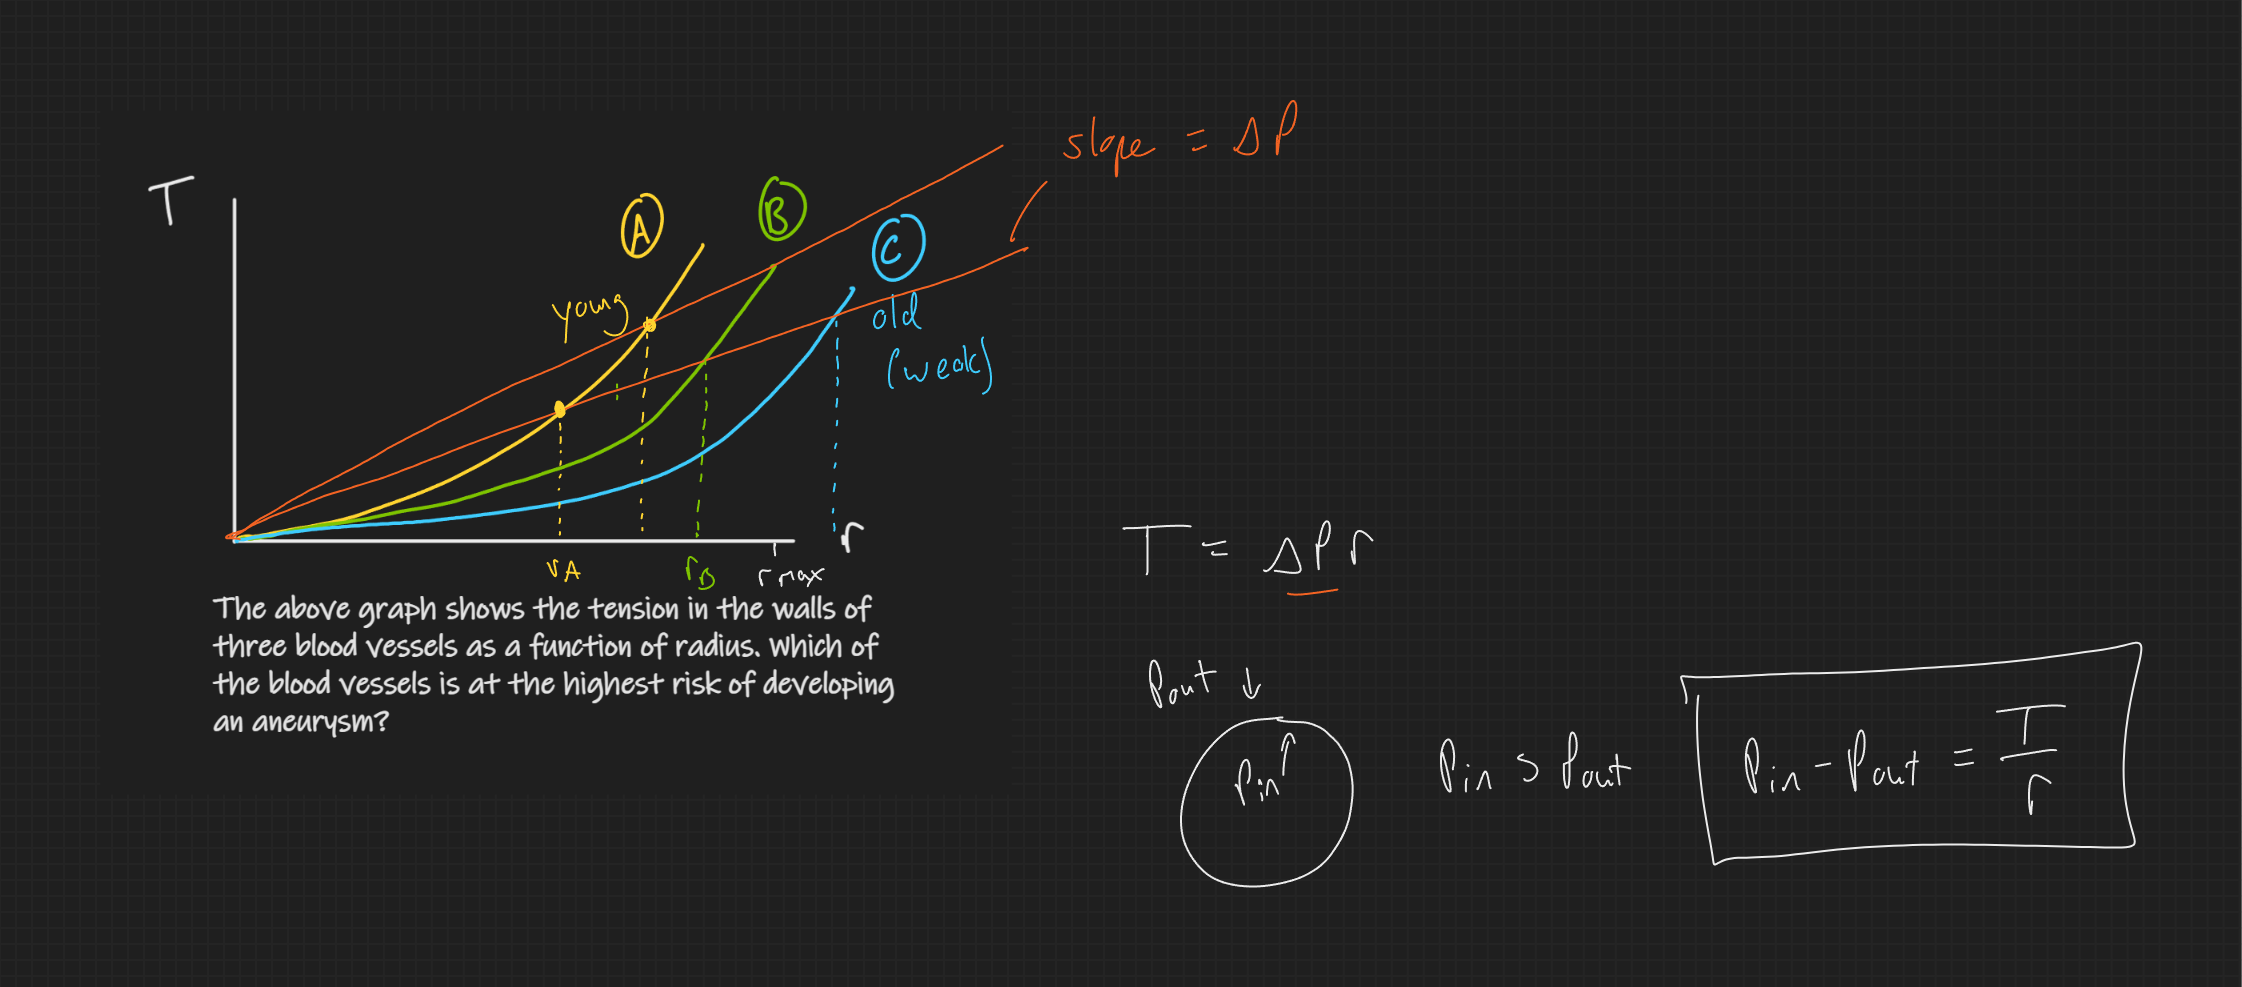 slope = ΔP
T
A
B
C
young
old
(weak)
r
rA
rB
rmax
T = ΔP r
The above graph shows the tension in the walls of
three blood vessels as a function of radius. Which of
the blood vessels is at the highest risk of developing
an aneurysm?
Pout ↓
Pin ↑
Pin > Pout
Pin - Pout = T/r